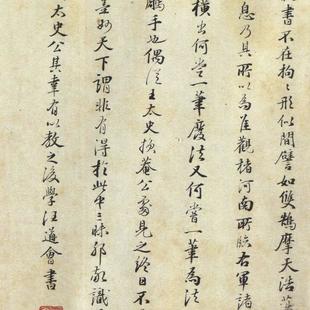 書不在拘〻形似間譬如雙鵠摩天浩
息乃其所以為佳觀褚河南所臨右軍諸
橫出何嘗一筆廢法又何嘗一筆為法
手也偶從王太史損菴公處見之終日不
妙天下謂非有得於此中三昧耶敬識
太史公其幸有以教之後學汪道會書